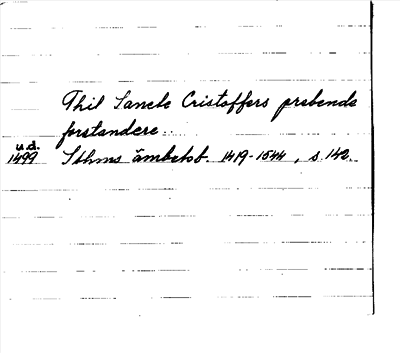 Thil Sancte Cristoffers prebende
forstandere..
u.d.
1499 Sthms ämbetsb. 1419-1544, s. 142.